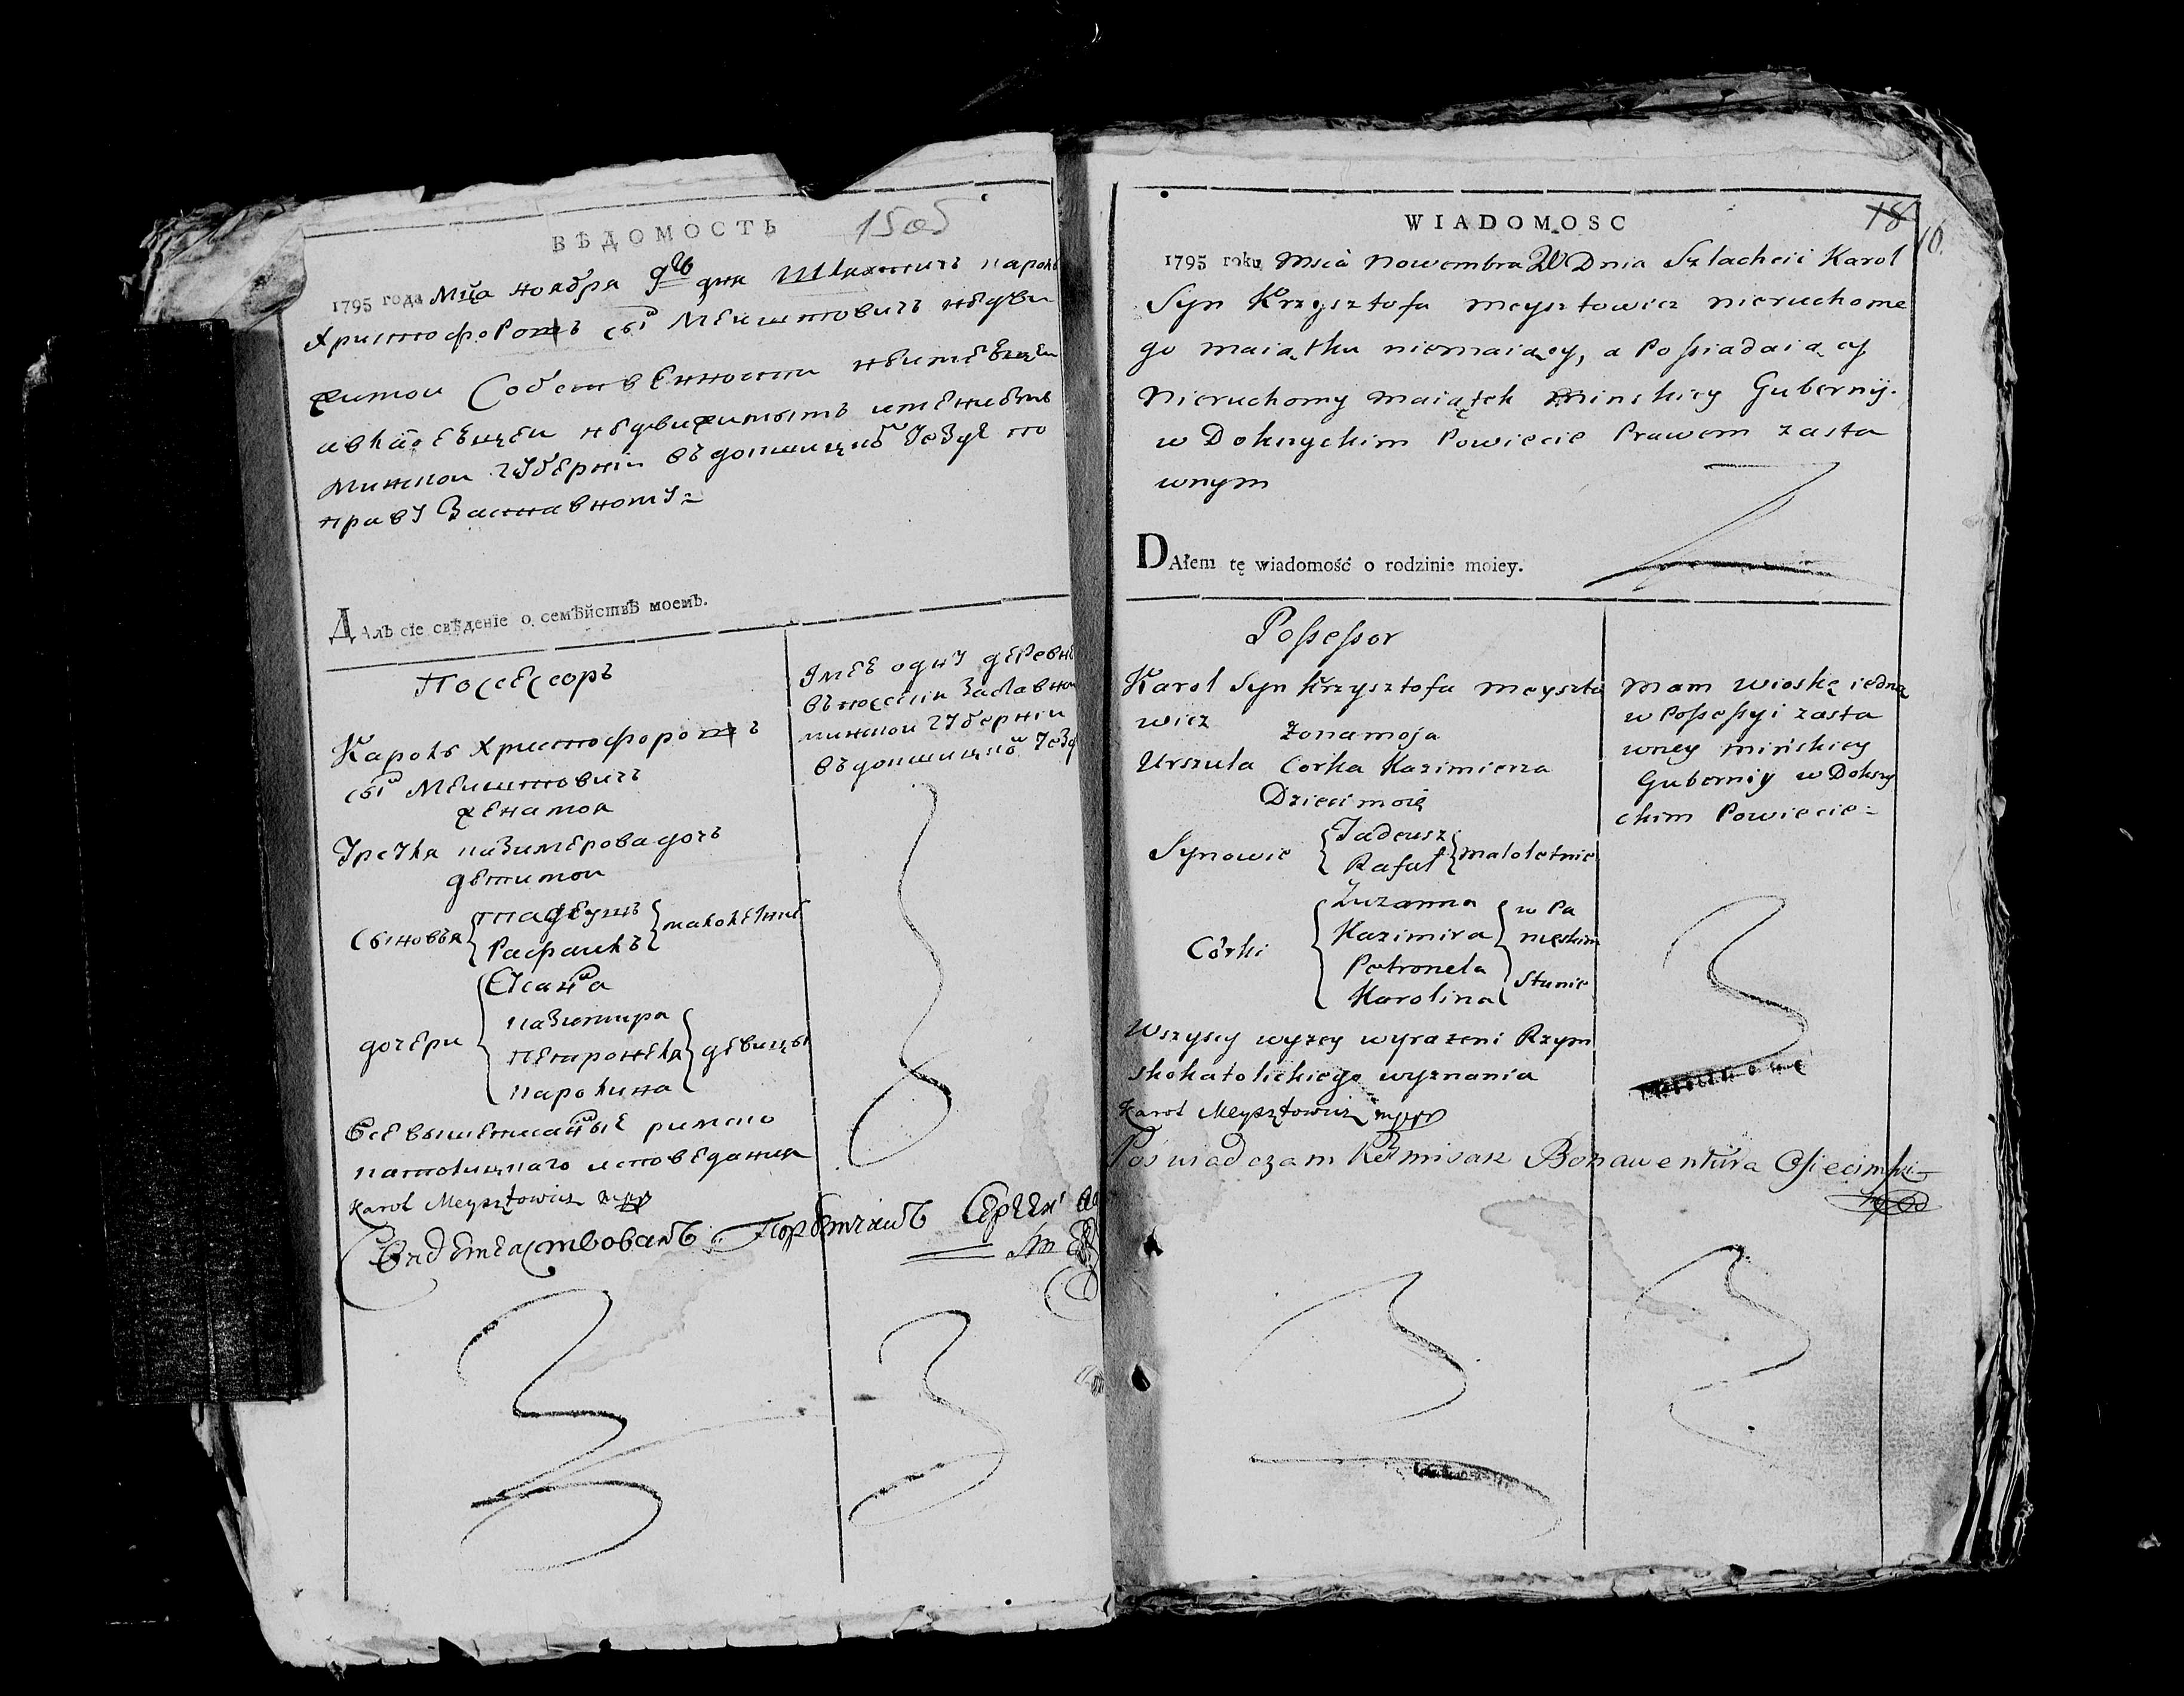 ВѢДОМОСТЬ 15 об
1795 года Мца ноября 9го дня Шляхтичъ Кароль
Христофоровъ сынъ Мейштовичъ недви
жимой Собственности неимеющей
а владеющей недвижимымъ имениемъ
минской Губерніи въ докшицкомъ уезде по
праву Заставному=
ДАлъ сіе свѣденіе о семѣйствѣ моемъ.
Поссессоръ
Кароль Христофоровъ
сынъ Мейштовичъ
жена моя
Казимерова дочь
дети мои
Сыновья Тадеушъ
Рафаилъ малолетние
дочери
Казимира
Петронеля девицы
Каролина
Все вышеписаныя римско
католицкаго исповедания
Karol Meysztowicz mpp
Свидетельствовалъ Сергей
Імею одну деревню
въ посесіи Заставной
минской Губерніи
въ докшицкомъ уезде
WIADOMOSC 18 16.
1795 roku Msca Nowembra Dnia Szlachcic Karol
Syn Krzysztofa Meysztowicz nieruchome
go maiątku niemaiący, a Possiadaiący
Nieruchomy maiątek Minskiey Gubernij.
w Dokszyckim Powiecie Prawem zasta
wnym
DAłem tę wiadomość o rodzinie moiey.
Possessor
Karol Syn Krzysztofa Meyszto
wicz Zona moja
Urszula Corka Kazimierza
Dzieci moie
Synowie Tadeusz
Rafał małoletnie
Zuzanna w Pa
Córki Kazimira nieńskim
Petronela
Karolina Stanie
Wszyscy wyzey wyrazeni Rzym
skokatolickiego wyznania
Karol Meysztowicz mpp
Poświadczam Bonawentura Osiecimski
mpp
Mam wioskę iedną
w Possessyi zasta
wney mińskiey
Guberniy w Dokszy
ckim Powiecie=